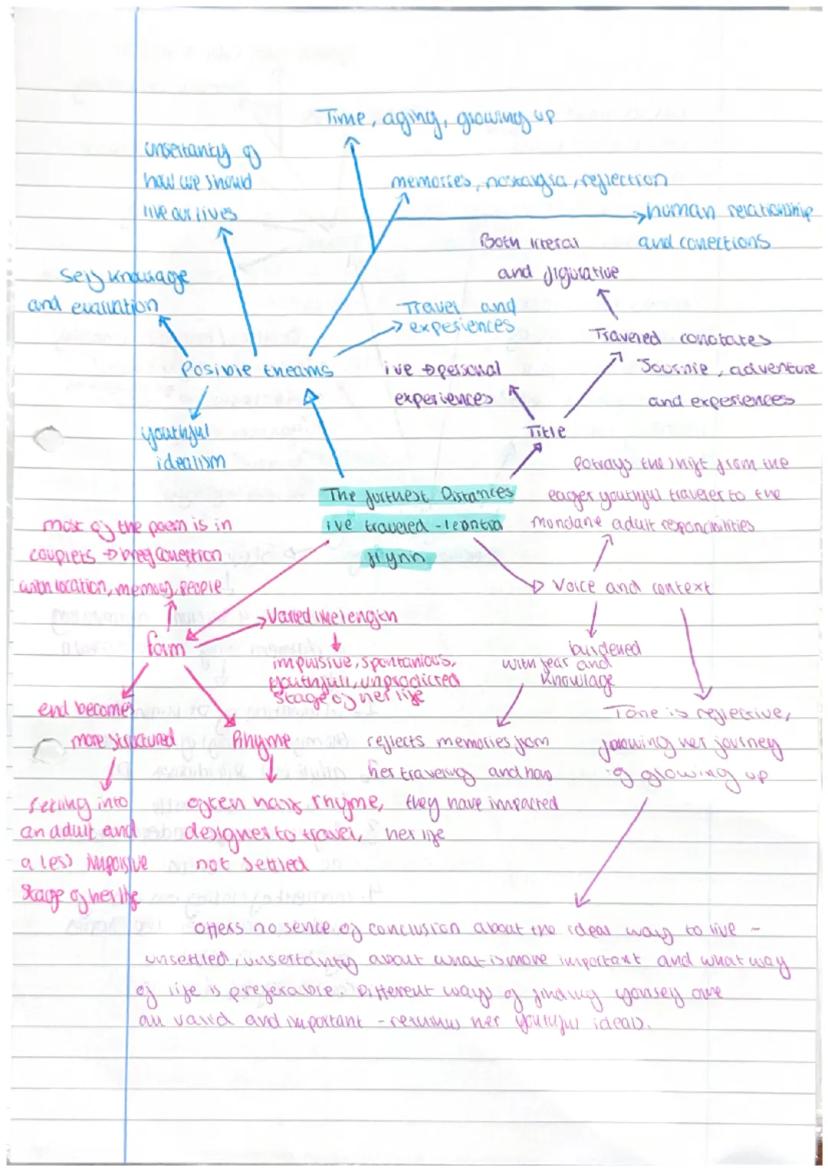 Time, aging, growing up
unsertanty of
how we should
live our lives
memories, nostalgia, reflection
human relationship
and conections
Both literal
and figurative
Self knowlage
and evaluation
Travel and
experiences
Posible theams
Traveled conotates
Journie, adventure
and experiences
ive → personal
experiences
youthful
idealism
Title
The furthest Distances
ive traveled - leontia
flynn
Potrays the shift from the
eager youthful traveler to the
mondane adult responsibilities
most of the poem is in
couplets →
with location, memory, people
Voice and context
Form
Varied line length
impulsive, spontanious,
youthfull, unpredicted
stage of her life
burdened
with fear and
knowlage
end becomes
more structured
Rhyme
reflects memories from
her traveling and how
they have impacted
her life
Tone is reflective,
following her journey
of growing up
settling into
an adult and
a less impolsive
stage of her life
often half rhyme,
designed to travel,
not settled
Offers no sence of conclusion about the ideal way to live -
unsettled, unsertainty about what is more important and what way
of life is preferable. Different ways of finding yourself are
all valid and important - returns her youthful ideals.